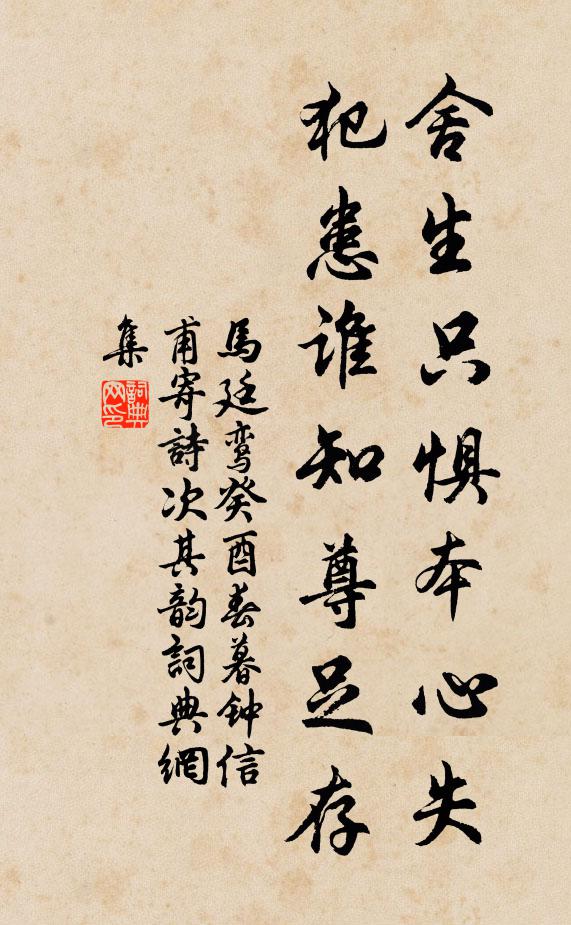 舍生只惧本心失
犯患谁知尊足存
馬廷鸾癸酉春暮钟信
甫寄詩次其韵詞典網
集
詞典网印